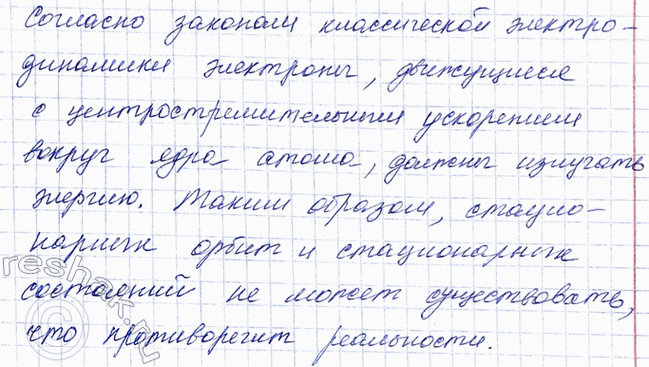 Согласно законам классической электро-
динамики электроны, движущиеся
с центростремительным ускорением
вокруг ядра атома, должны излучать
энергию. Таким образом, стацио-
нарных орбит и стационарных
состояний не может существовать,
что противоречит реальности.
©reshak.ru